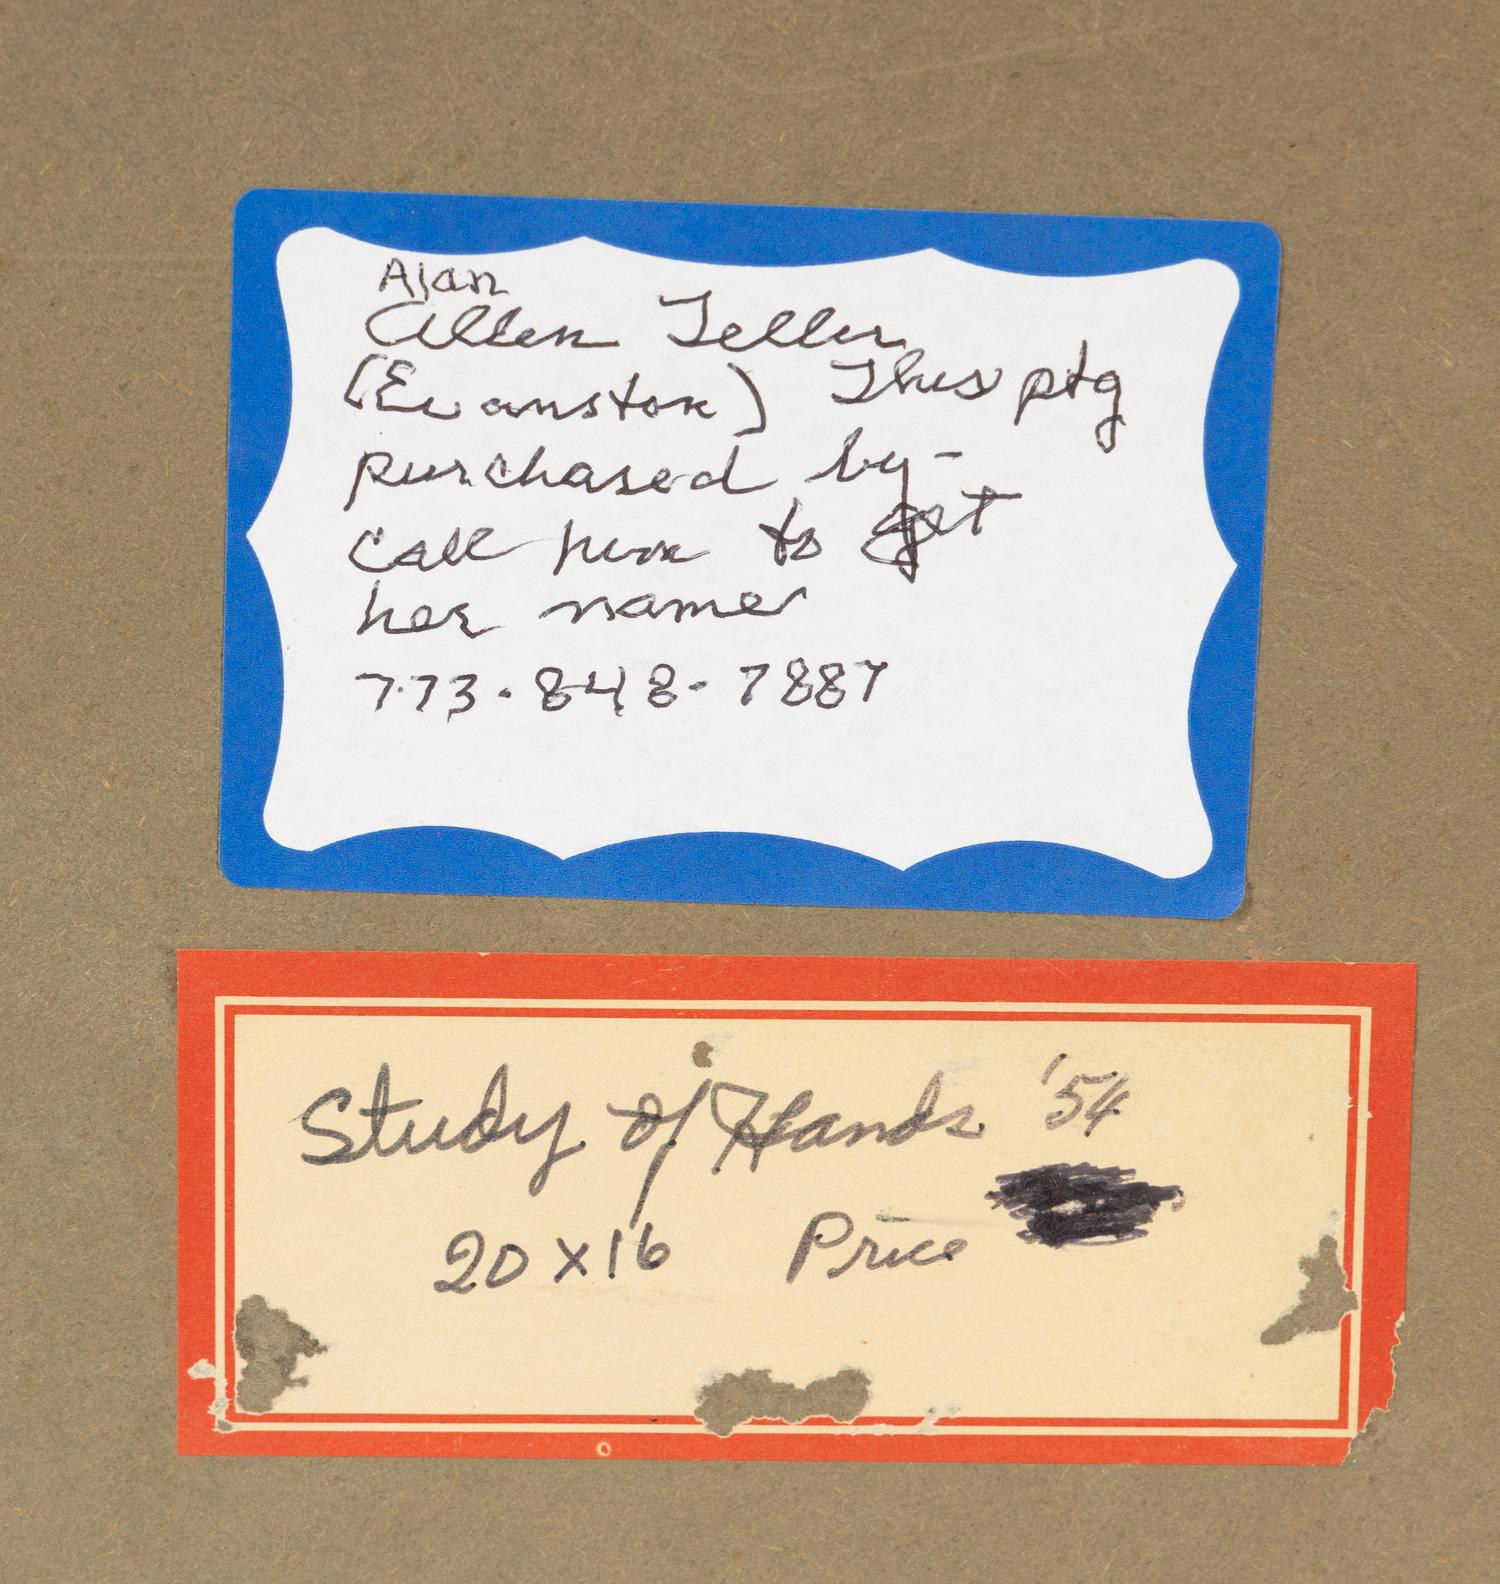 Alan
Allen Teller
(Evanston) This ptg
purchased by-
Call him to get
her name
773-848-7887
Study of Hands '54
20 x 16 Price